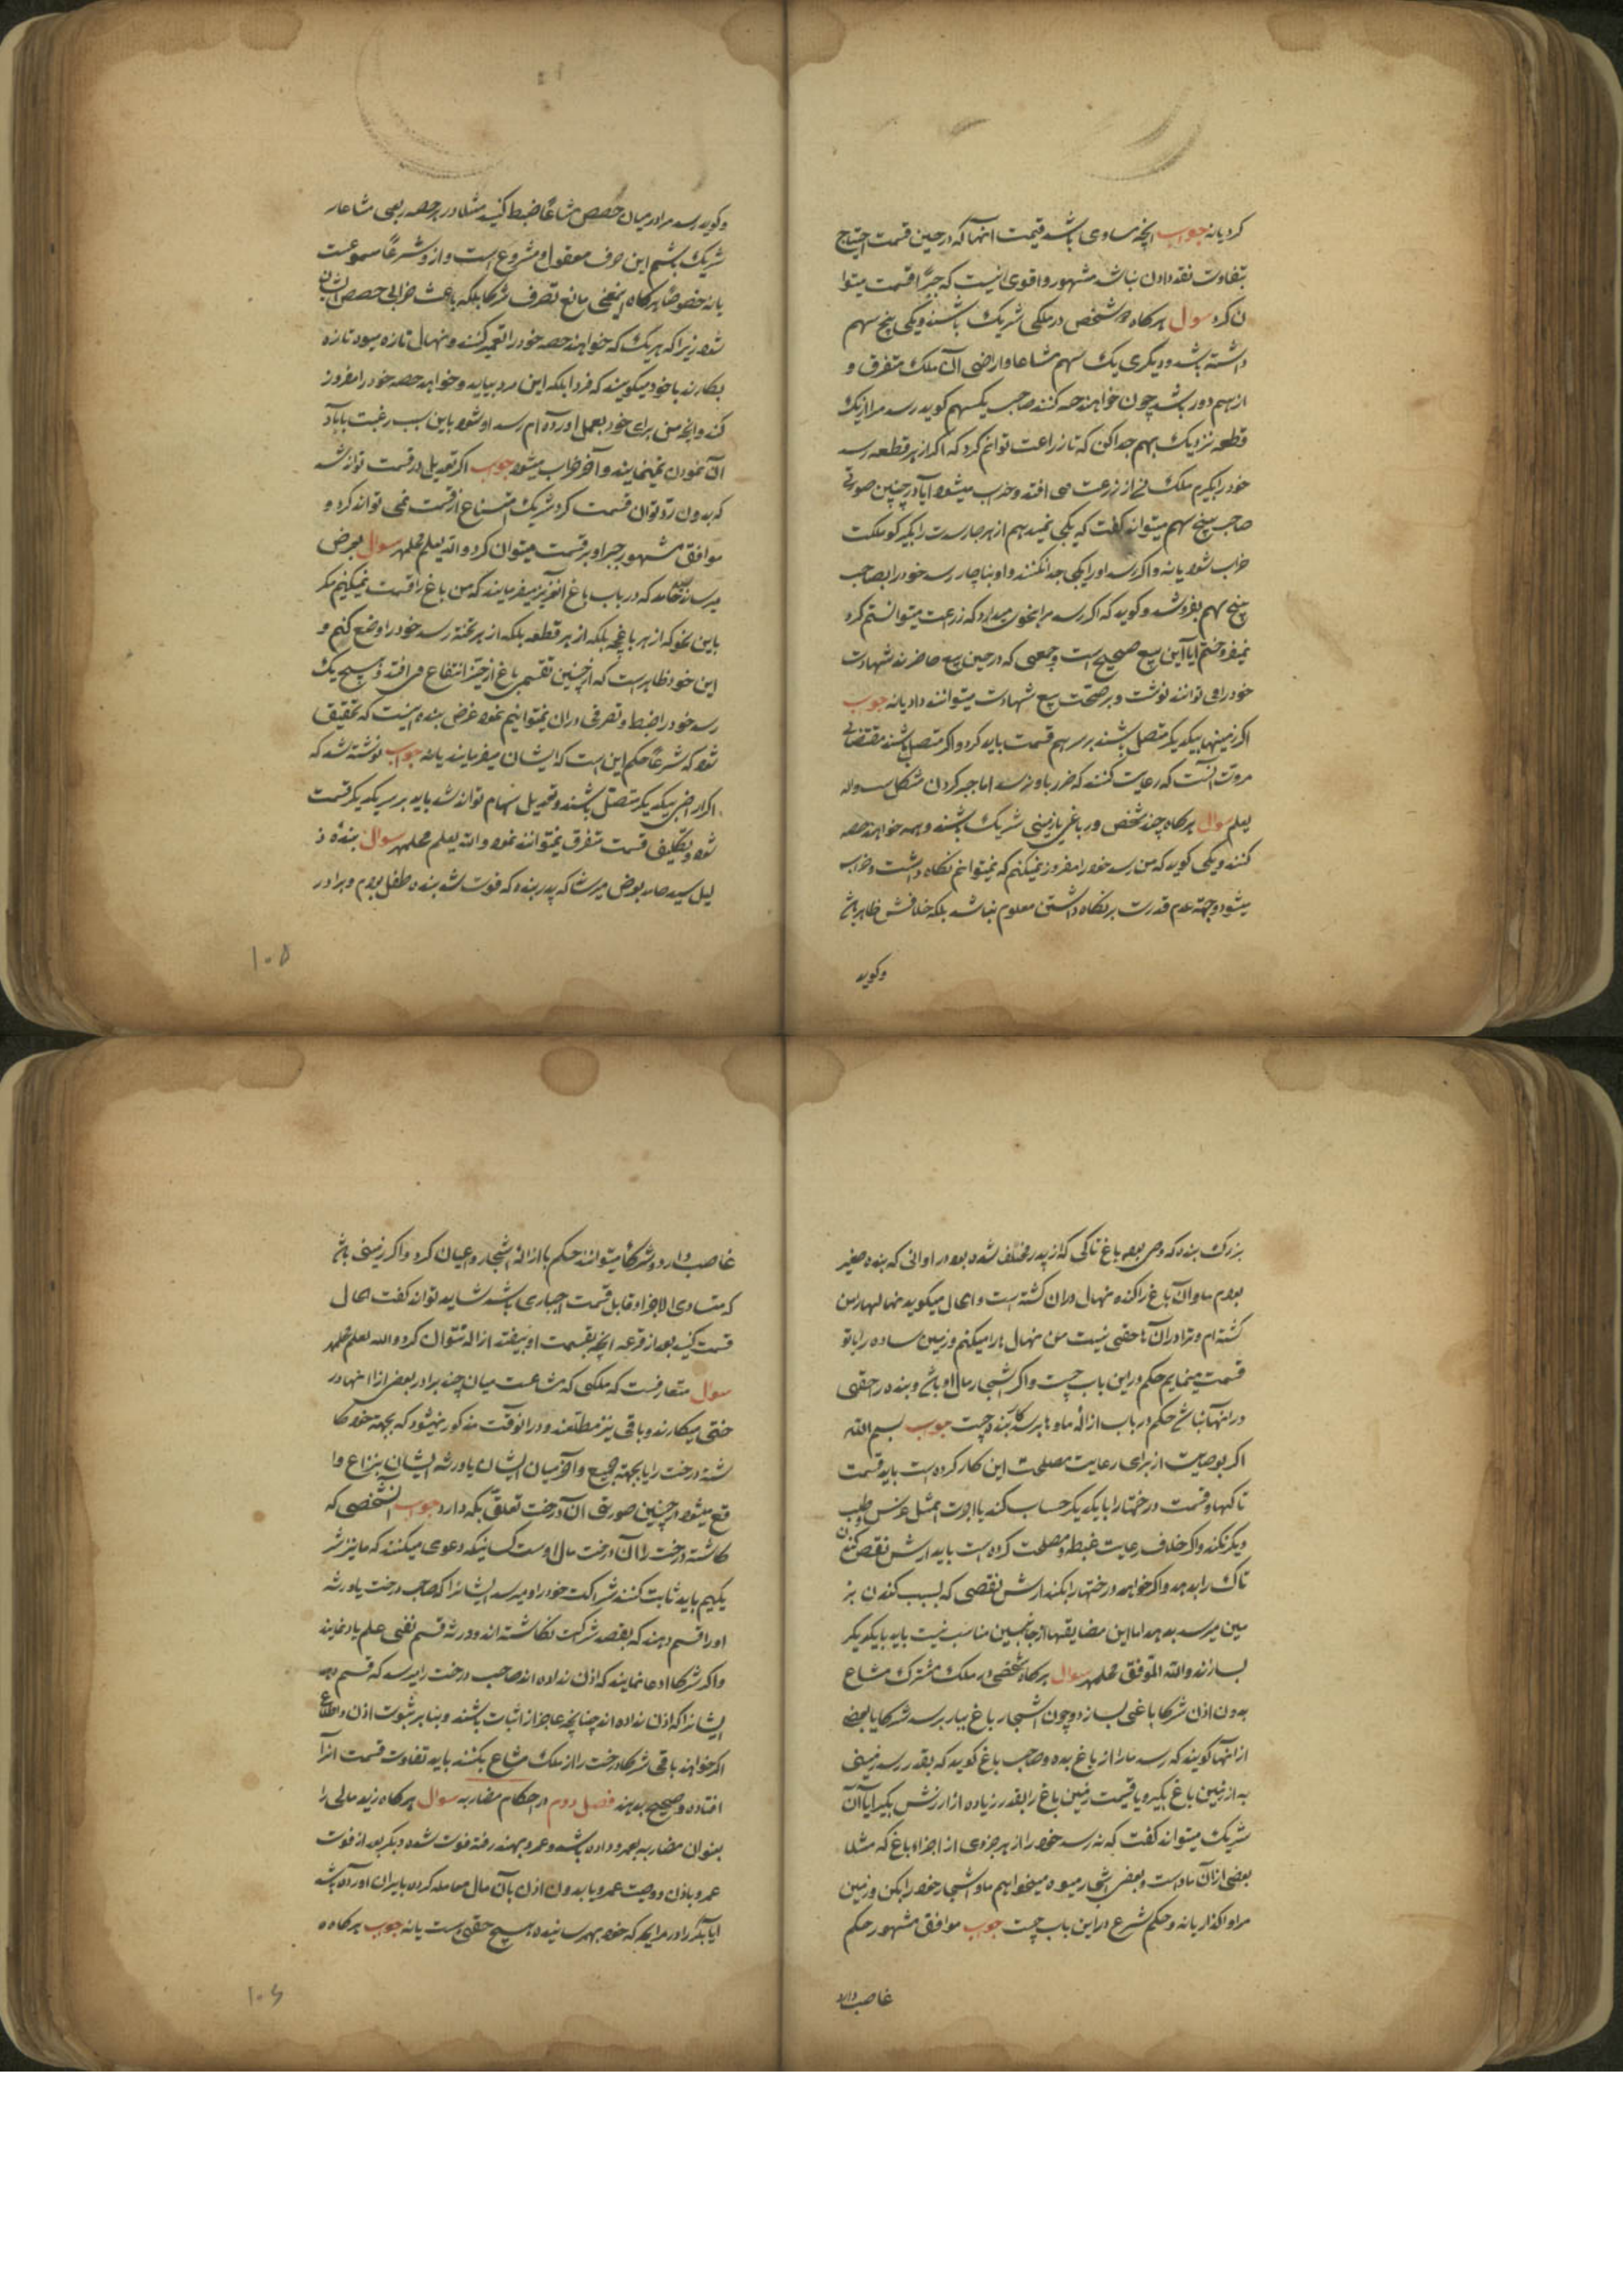 کرد یا نه جواب آنچه مساوی باشد قیمت انها که در حین قسمت احتیاج
بتفاوت نقد دادن نباشد مشهور و اقوی اینست که جبرًا قسمت میتوا
ن کرد سوال هرکاه دو شخص در ملکی شریک باشند و یکی پنج سهم
داشته باشد و دیکری یک سهم مشاعا و اراضی آن ملک متفرق و
از هم دور باشد چون خواهند حصه کنند صاحب یکسهم کوید رسد مرا از یک
قطعه نزدیک بهم جدا کن که تا زراعت توانم کرد که اکر از هر قطعه رسد
خود را بکیرم ملک من از زرعت می افتد و خراب میشود آیا در چنین صورتی
صاحب پنج سهم میتواند کفت که یکجی نمیدهم از هر جا رسدت را بکیر کو ملکت
خراب شود یا نه و اکر رسد او را یکجی جدا نکنند و او بناچار رسد خود را بصاحب
پنج سهم بفروشد و کوید که اکر رسد مرا بنحوی میداد که زرعت میتوانستم کرد
نمیفروختم آیا این بیع صحیح است و جمعی که در حین بیع حاضرند شهادت
خود را می توانند نوشت و بر صحت بیع شهادت میتوانند داد یا نه جواب
اکر زمینها بیکدیکر متصل باشند بر سر هم قسمت باید کرد و اکر متصل نباشند مقتضای
مروت آنست که رعایت کنند که ضرر باو نرسد اما جبر کردن مشکل است و الله
یعلم سوال هرکاه چند شخص در باغی یا زمینی شریک باشند و همه خواهند حصه
کنند و یکی کوید که من رسد خود را مفروز نمیکنم که نمیتوانم نکاه داشت و خراب
میشود و جهة عدم قدرت بر نکاه داشتن معلوم نباشد بلکه خلافش ظاهر باشد
وکوید
وکوید رسد مرا در میان حصص مشاعًا ضبط کنید مثلا در هر حصه ربعی مشاعا
شریک باشم این حرف معقول و مشروع است و از و شرعًا مسموعست
یا نه خصوصًا هرکاه اینمعنی مانع تصرف شرکا بلکه باعث خرابی حصص ایشان
شود زیرا که هر یک که خواهند حصه خود را تعمیر کنند و نهال تازه میوه تازه
بکارند با خود میکویند که فردا بلکه این مرد بیاید و خواهد حصه خود را مفروز
کند و آنچه من برای خود بعمل اورده ام رسد او شود باین سبب رغبت باباد
ان نمودن نمینمایند و آخر خراب میشود جواب اکر تعدیل در قسمت تواند شد
که بدون رد توان قسمت کرد شریک امتناع از قسمت نمی تواند کرد و
موافق مشهور جبر او بر قسمت میتوان کرد و الله یعلم محلمهر سوال بعرض
میرساند که در باب باغ انعزیز میفرمایند که من باغ را قسمت نمیکنم مکر
باین نحو که از هر باغچه بلکه از هر قطعه بلکه از هر تخته رسد خود را وضع کنم و
این خود ظاهر است که از چنین تقسیم باغ از حیز انتفاع می افتد و هیچ یک
رسد خود را ضبط و تصرفی در ان نمیتوانیم نمود غرض بنده اینست که تحقیق
شود که شرعًا حکم این است که ایشان میفرمایند یا نه جواب نوشته شد که
اکر اراضی بیکدیکر متصل باشند و تعدیل سهام تواند شد باید بر سر یکدیکر قسمت
شود و تکلیف قسمت متفرق نمیتوانند نمود و الله یعلم محلمهر سوال بنده ذ
لیل سید حامد بعرض میرساند که پدر بنده که فوت شد بنده طفل بودم و برادر
۱۰۵
بزرک بنده که وصی بود باغ تاکی که از پدر مخلف شده بود در اوانی که بنده صغیر
بودم ماو ان باغ را کنده نهال در ان کشته است و الحال میکوید نهالها را من
کشته ام و ترا در ان ها حقی نیست من نهال ها را میکنم و زمین ساده را با تو
قسمت مینمایم حکم در این باب چیست و اکر اشجار مال او باشد و بنده را حقی
در انها نباشد حکم در باب ازاله ماو ها بر سر کار بنده چیست جواب بسم الله
اکر بوصایت از برای رعایت مصلحت این کار کرده است باید قسمت
تاکها و قسمت درختها را با یکدیکر حساب کند با اجرت المثل غرس و طلب
دیکر نکند و اکر خلاف رعایت غبطه و مصلحت کرده است باید ارش نقص کندن
تاک را بدهد و اکر خواهد درختها را بکند ارش نقصی که بسبب کندن بز
مین میرسد بدهد اما این مضایقها از جانبین مناسب نیست باید با یکدیکر
بسازند و الله الموفق محلمهر سوال هرکاه شخصی در ملک مشترک مشاع
بدون اذن شرکا باغی بسازد و چون اشجار باغ ببار برسد شرکا یا بعضی
از انها کویند که رسد ما را از باغ بده و صاحب باغ کوید که بقدر رسد زمینی
به از زمین باغ بکیر و یا قیمت زمین باغ را بقدر زیاده از ارزش بکیر ایا آن
شریک میتواند کفت که نه رسد خود را از هر جزوی از اجزاء باغ که مثلا
بعضی از ان ماو است و بعضی اشجار میوه میخواهیم ماو و اشجار خود را بکن و زمین
مرا واکذار یا نه و حکم شرع در این باب چیست جواب موافق مشهور حکم
غاصب دارد
غاصب دارد و شرکا میتوانند حکم باازالهٔ اشجار و اعیان کرد و اکر زمینی باشد
که متساوی الاجزا و قابل قسمت اجباری باشد شاید تواند کفت الحال
قسمت کنید بعد از قرعه آنچه بقسمت او بیفتد ازاله نتوان کرد و الله یعلم محلمهر
سوال متعارفست که ملکی که مشاعست میان چند برادر بعضی از انها در
ختی میکارند و باقی نیز مطلعند و در انوقت مذکور نمیشود که بجهة خود کا
شته درخت را یا بجهة جمیع و آخر میان ایشان یا ورثه ایشان نزاع وا
قع میشود در چنین صورتی آن درخت تعلق بکه دارد جواب آنشخصی که
کاشته درخت را ان درخت مال اوست کسانیکه دعوی میکنند که ما نیز شر
یکیم باید ثابت کنند شراکت خود را و میرسد ایشانرا که صاحب درخت یا ورثه
او را قسم دهند که بقصد شرکت نکاشته اند و ورثه قسم نفی علم یاد نمایند
و اکر شرکا ادعا نمایند که اذن نداده اند صاحب درخت را میرسد که قسم دهد
ایشانرا که اذن نداده اند چنانچه عاجز از اثبات باشند و بنا بر ثبوت اذن و اطلاع
اکر خواهند باقی شرکا درخت را از ملک مشاع بکنند باید تفاوت قسمت انرا
افتاده و صحیح بدهند فصل دوم در احکام مضاربه سوال هرکاه زید مالی را
بعنوان مضاربه بعمرو داده باشد و عمرو بهند رفته فوت شده و بکر بعد از فوت
عمرو باذن و وصیت عمرو یا بدون اذن بآن مال معامله کرده بایران اورده باشد
ایا بکر را در مرابحه که خود بهمرسانیده هیچ حقی هست یا نه جواب هرکاه ه
۱۰۶